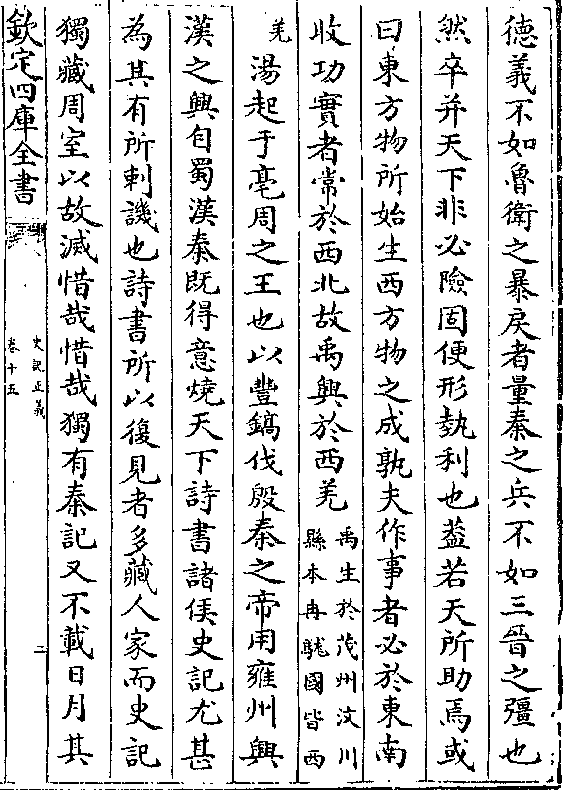 德義不如魯衛之暴戾者量秦之兵不如三晉之彊也
然卒并天下非必險固便形埶利也葢若天所助焉或
曰東方物所始生西方物之成孰夫作事者必於東南
收功實者常於西北故禹興於西羌
禹生於茂州汶川
縣本冉駹國皆西
羌
湯起于亳周之王也以豐鎬伐殷秦之帝用雍州興
漢之興自蜀漢秦既得意燒天下詩書諸侯史記尤甚
為其有所刺譏也詩書所以復見者多藏人家而史記
獨藏周室以故滅惜哉惜哉獨有秦記又不載日月其
欽定四庫全書
史記正義
卷十五
二